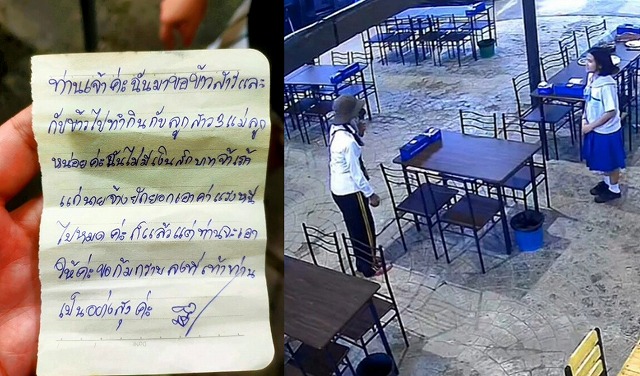 ท่านเจ้าค่ะฉันมาขอข้าวสารและ
กับข้าวไปทำกินกับลูกสาว 3 แม่ลูก
หน่อยค่ะฉันไม่มีเงินสักบาทจ้าเจ้า
แก่นายจ้างยักยอกเอาค่าแรงหนี
ไปหมดค่ะ ก็แล้วแต่ท่านจะเอา
ให้ค่ะขอก้มกราบลงที่เท้าท่าน
เป็นอย่างสูงค่ะ